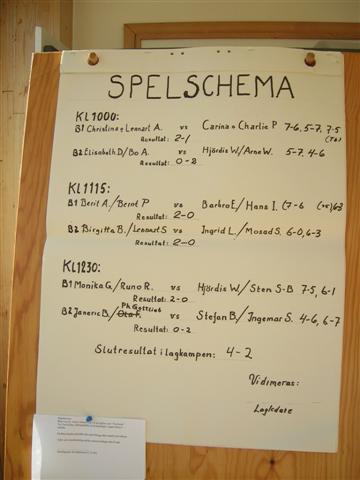 SPELSCHEMA
KL1000:
B1 Christina + Lennart A. vs Carina + Charlie P 7-6, 5-7, 7-5
Resultat: 2-1
B2 Elisabeth D/Bo A. vs Hjördis W/Arne W. 5-7, 4-6
Resultat: 0-2
KL1115:
B1 Berit A./Bernt P vs Barbro E/Hans I. (7-6 6-3
Resultat: 2-0
B2 Birgitta B./Lennart S vs Ingrid L./Mosad S. 6-0, 6-3
Resultat: 2-0
KL1230:
B1 Monika G./Runo R. vs Hjördis W/Sten S-B 7-5, 6-1
Resultat: 2-0
Ph Gottlieb
B2 Janeric B./ vs Stefan B/Ingemar S. 4-6, 6-7
Resultat: 0-2
Slutresultat i lagkampen: 4-2
Vidimeras:
Lagledare